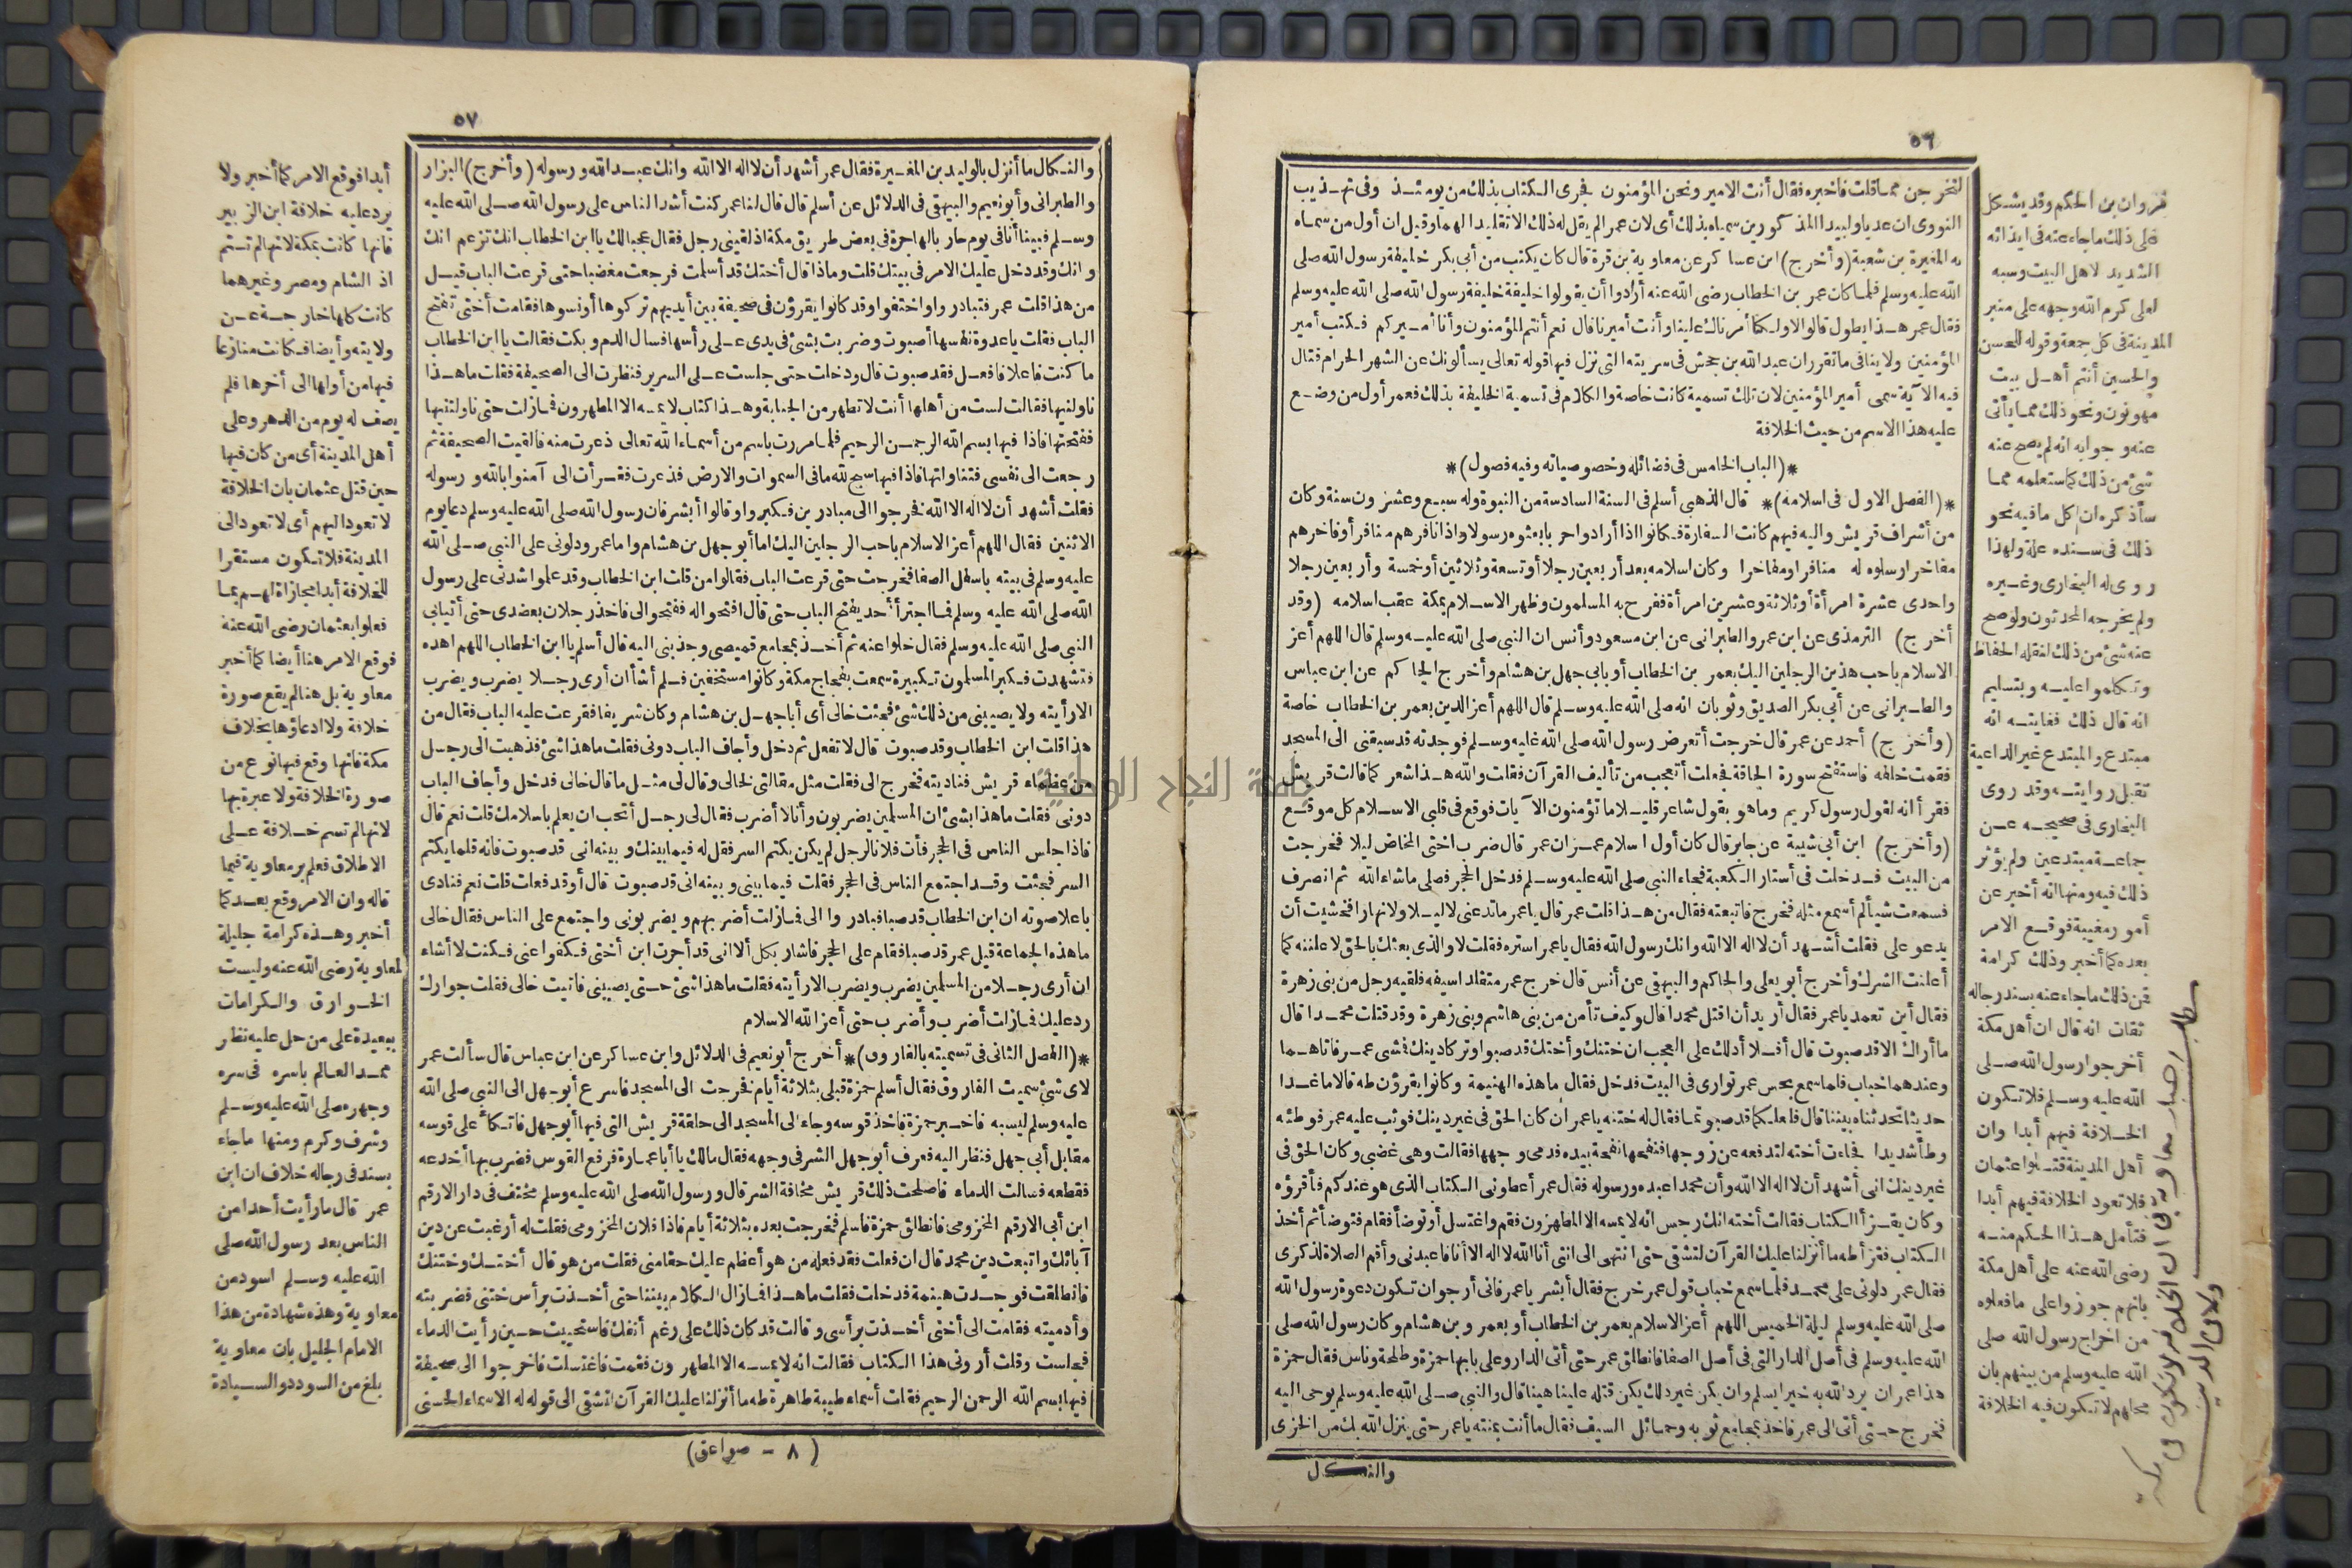 ٥٦
لتخرجن مما قلت فاخبره فقال أنت الامير ونحن المؤمنون فجرى الكتاب بذلك من يومئذ وفى تهذيب
النووى ان عديا ولبيدا المذكورين سمياه بذلك أى لان عمر الم يقل له ذلك الا تقليدا لهما وقيل ان أول من سماه
به المغيرة بن شعبة (وأخرج) ابن عساكر عن معاوية بن قرة قال كان يكتب من أبى بكر خليفة رسول الله صلى
الله عليه وسلم فلما كان عمر بن الخطاب رضى الله عنه أرادوا أن يقولوا خليفة خليفة رسول الله صلى الله عليه وسلم
فقال عمر هذا يطول قالوا لا ولكنا أمرناك علينا وأنت أميرنا قال نعم أنتم المؤمنون وأنا أميركم فكتب أمير
المؤمنين ولا ينافى ما تقرر ان عبد الله بن جحش فى سريته التى نزل فيها قوله تعالى يسألونك عن الشهر الحرام قتال
فيه الآية سمى أمير المؤمنين لان تلك تسمية كانت خاصة والكلام فى تسمية الخليفة بذلك فعمر أول من وضع
عليه هذا الاسم من حيث الخلافة
*(الباب الخامس فى فضائله وخصوصياته وفيه فصول)*
*(الفصل الاول فى اسلامه)* قال الذهبى أسلم فى السنة السادسة من النبوة وله سبع وعشرون سنة وكان
من أشراف قريش واليه فيهم كانت السفارة فكانوا اذا أرادوا حربا بعثوه رسولا واذا نافرهم منافر أو فاخرهم
مفاخر ارسلوه له منافرا ومفاخرا وكان اسلامه بعد أربعين رجلا أو تسعة وثلاثين أو خمسة وأربعين رجلا
واحدى عشرة امرأة أو ثلاثة وعشرين امرأة ففرح به المسلمون وظهر الاسلام بمكة عقب اسلامه (وقد
أخرج) الترمذى عن ابن عمر والطبرانى عن ابن مسعود وأنس ان النبى صلى الله عليه وسلم قال اللهم أعز
الاسلام باحب هذين الرجلين اليك بعمر بن الخطاب أو بابى جهل بن هشام وأخرج الحاكم عن ابن عباس
والطبرانى عن أبى بكر الصديق وثوبان انه صلى الله عليه وسلم قال اللهم أعز الدين بعمر بن الخطاب خاصة
(وأخرج) أحمد عن عمر قال خرجت أتعرض رسول الله صلى الله عليه وسلم فوجدته قد سبقنى الى المسجد
فقمت خلفه فاستفتح سورة الحاقة فجعلت أتعجب من تأليف القرآن فقلت والله هذا شعر كما قالت قريش
فقرأ انه لقول رسول كريم وما هو بقول شاعر قليلا ما تؤمنون الآيات فوقع فى قلبى الاسلام كل موقع
(وأخرج) ابن أبى شيبة عن جابر قال كان أول اسلام عمر ان عمر قال ضرب اختى المخاض ليلا فخرجت
من البيت فدخلت فى أستار الكعبة فجاء النبى صلى الله عليه وسلم فدخل الحجر فصلى ما شاء الله ثم انصرف
فسمعت شيأ لم أسمع مثله فخرج فاتبعته فقال من هذا قلت عمر قال يا عمر ما تدعنى لا ليلا ولا نهارا فخشيت أن
يدعو على فقلت أشهد أن لا اله الا الله وانك رسول الله فقال يا عمر استره فقلت لا والذى بعثك بالحق لاعلننه كما
أعلنت الشرك وأخرج أبو يعلى والحاكم والبيهقى عن أنس قال خرج عمر متقلدا سيفه فلقيه رجل من بنى زهرة
فقال أين تعمد يا عمر فقال أريد أن اقتل محمدا قال وكيف تأمن من بنى هاشم وبنى زهرة وقد قتلت محمدا قال
ما أراك الا قد صبوت قال أفلا أدلك على العجب ان ختنك وأختك قد صبوا وتركا دينك فمشى عمر فاتاهما
وعندهما خباب فلما سمع بحس عمر توارى فى البيت فدخل فقال ما هذه الهنيمة وكانوا يقرؤن طه قالا ما عدا
حديثا تحدثناه بيننا قال فلعلكما قد صبوتما فقال له ختنه يا عمر ان كان الحق فى غير دينك فوثب عليه عمر فوطئه
وطأ شديدا فجاءت أخته لتدفعه عن زوجها فنفحها نفحة بيده فدمى وجهها فقالت وهى غضبى وكان الحق فى
غير دينك انى أشهد أن لا اله الا الله وأن محمدا عبده ورسوله فقال عمر أعطونى الكتاب الذى هو عندكم فأقرؤه
وكان يقرأ الكتاب فقالت أخته انك رجس انه لا يمسه الا المطهرون فقم واغتسل أو توضأ فقام فتوضأ ثم أخذ
الكتاب فقرأ طه ما أنزلنا عليك القرآن لتشقى حتى انتهى الى اننى أنا الله لا اله الا أنا فاعبدنى وأقم الصلاة لذكرى
فقال عمر دلونى على محمد فلما سمع خباب قول عمر خرج فقال أبشر يا عمر فانى أرجو ان تكون دعوة رسول الله
صلى الله عليه وسلم ليلة الخميس اللهم أعز الاسلام بعمر بن الخطاب أو بعمرو بن هشام وكان رسول الله صلى
الله عليه وسلم فى أصل الدار التى فى أصل الصفا فانطلق عمر حتى أتى الدار وعلى بابها حمزة وطلحة وناس فقال حمزة
هذا عمر ان يرد الله به خيرا يسلم وان يكن غير ذلك يكن قتله علينا هينا قال والنبى صلى الله عليه وسلم يوحى اليه
فخرج حتى أتى الى عمر فاخذ بمجامع ثوبه وحمائل السيف فقال ما أنت بمنته يا عمر حتى ينزل الله بك من الخزى
والنكال
فروان بن الحكم وقد يشكل
على ذلك ما جاء عنه فى ايذائه
الشديد لاهل البيت وسبه
لعلى كرم الله وجهه على منبر
المدينة فى كل جمعة وقوله للحسن
والحسين أنتم أهل بيت
ونحو ذلك مما يأتى
عنه وجوابه انه لم يصح عنه
شئ من ذلك كما ستعلمه مما
سأذكره ان كل ما فيه نحو
ذلك فى سنده علة ولهذا
روى له البخارى وغيره
ولم يخرجه المحدثون ولو صح
عنه شئ من ذلك لنقله الحفاظ
وتكلموا عليه وبتسليم
انه قال ذلك فغايته انه
مبتدع والمبتدع غير الداعية
تقبل روايته وقد روى
البخارى فى صحيحه عن
جماعة مبتدعين ولم يؤثر
ذلك فيه ومنها انه أخبر عن
أمور مغيبة فوقع الامر
بعده كما أخبر وذلك كرامة
فمن ذلك ما جاء عنه بسند رجاله
ثقات انه قال ان أهل مكة
أخرجوا رسول الله صلى
الله عليه وسلم فلا تكون
الخلافة فيهم أبدا وان
أهل المدينة قتلوا عثمان
فلا تعود الخلافة فيهم أبدا
فتأمل هذا الحكم منه
رضى الله عنه على أهل مكة
بانهم جوزوا على ما فعلوه
من اخراج رسول الله صلى
الله عليه وسلم من بينهم بان
محلهم لا تكون فيه الخلافة
مطلب اخبار معاوية ان الخلافة لا تكون فى مكة
ولا فى المدينة
٥٧
والنكال ما أنزل بالوليد بن المغيرة فقال عمر أشهد أن لا اله الا الله وانك عبد الله ورسوله (وأخرج) البزار
والطبرانى وأبو نعيم والبيهقى فى الدلائل عن أسلم قال قال لنا عمر كنت أشد الناس على رسول الله صلى الله عليه
وسلم فبينا أنا فى يوم حار بالهاجرة فى بعض طريق مكة اذ لقينى رجل فقال عجبا لك يا ابن الخطاب انك تزعم انك
وانك وقد دخل عليك الامر فى بيتك قلت وماذا قال أختك قد أسلمت فرجعت مغضبا حتى قرعت الباب قيل
من هذا قلت عمر فتبادروا واختفوا وقد كانوا يقرؤن فى صحيفة بين أيديهم تركوها أو نسوها فقامت أختى تفتح
الباب فقلت يا عدوة نفسها أصبوت وضربت بشئ فى يدى على رأسها فسال الدم وبكت فقالت يا ابن الخطاب
ما كنت فاعلا فافعل فقد صبوت قال ودخلت حتى جلست على السرير فنظرت الى الصحيفة فقلت ما هذا
ناولنيها فقالت لست من أهلها أنت لا تطهر من الجنابة وهذا كتاب لا يمسه الا المطهرون فما زلت حتى ناولتنيها
ففتحتها فاذا فيها بسم الله الرحمن الرحيم فلما مررت باسم من أسماء الله تعالى ذعرت منه فالقيت الصحيفة ثم
رجعت الى نفسى فتناولتها فاذا فيها سبح لله ما فى السموات والارض فذعرت فقرأت الى آمنوا بالله ورسوله
فقلت أشهد أن لا اله الا الله فخرجوا الى مبادرين فكبروا وقالوا أبشر فان رسول الله صلى الله عليه وسلم دعا يوم
الاثنين فقال اللهم أعز الاسلام باحب الرجلين اليك اما أبو جهل بن هشام واما عمر ودلونى على النبى صلى الله
عليه وسلم فى بيته باسفل الصفا فخرجت حتى قرعت الباب فقالوا من قلت ابن الخطاب وقد علموا شدتى على رسول
الله صلى الله عليه وسلم فما اجترأ أحد يفتح الباب حتى قال افتحوا له ففتحوا لى فاخذ رجلان بعضدى حتى أتيا بى
النبى صلى الله عليه وسلم فقال خلوا عنه ثم أخذ بمجامع قميصى وجذبنى اليه قال أسلم يا ابن الخطاب اللهم اهده
فتشهدت فكبر المسلمون تكبيرة سمعت بفجاج مكة وكانوا مستخفين فلم أشأ أن أرى رجلا يضرب ويضرب
الا رأيته ولا يصيبنى من ذلك شئ فجئت خالى أى أبا جهل بن هشام وكان شريفا فقرعت عليه الباب فقال من
هذا قلت ابن الخطاب وقد صبوت قال لا تفعل ثم دخل وأجاف الباب دونى فقلت ما هذا شئ فذهبت الى رجل
من عظماء قريش فناديته فخرج الى فقلت مثل مقالتى لخالى وقال لى مثل ما قال خالى فدخل وأجاف الباب
دونى فقلت ما هذا بشئ ان المسلمين يضربون وأنا لا أضرب فقال لى رجل أتحب ان يعلم باسلامك قلت نعم قال
فاذا جلس الناس فى الحجر فأت فلانا لرجل لم يكن يكتم السر فقل له فيما بينك وبينه انى قد صبوت فانه قلما يكتم
السر فجئت وقد اجتمع الناس فى الحجر فقلت فيما بينى وبينه انى قد صبوت قال أو قد فعلت قلت نعم فنادى
باعلا صوته ان ابن الخطاب قد صبا فبادروا الى فما زلت أضربهم ويضربونى واجتمع على الناس فقال خالى
ما هذه الجماعة قيل عمر قد صبا فقام على الحجر فاشار بكمه ألا انى قد أجرت ابن أختى فكفوا عنى فكنت لا أشاء
ان أرى رجلا من المسلمين يضرب ويضرب الا رأيته فقلت ما هذا شئ حتى يصيبنى فاتيت خالى فقلت جوارك
رد عليك فما زلت أضرب وأضرب حتى أعز الله الاسلام
*(الفصل الثانى فى تسميته بالفاروق)* أخرج أبو نعيم فى الدلائل وابن عساكر عن ابن عباس قال سألت عمر
لاى شئ سميت الفاروق فقال أسلم حمزة قبلى بثلاثة أيام فخرجت الى المسجد فاسرع أبو جهل الى النبى صلى الله
عليه وسلم ليسبه فاخبر حمزة فاخذ قوسه وجاء الى المسجد الى حلقة قريش التى فيها أبو جهل فاتكأ على قوسه
مقابل أبى جهل فنظر اليه فعرف أبو جهل الشر فى وجهه فقال مالك يا أبا عمارة فرفع القوس فضرب بها أخدعه
فقطعه فسالت الدماء فاصلحت ذلك قريش مخافة الشر قال ورسول الله صلى الله عليه وسلم مختف فى دار الارقم
ابن أبى الارقم المخزومى فانطلق حمزة فاسلم فخرجت بعده بثلاثة أيام فاذا فلان المخزومى فقلت له أرغبت عن دين
آبائك واتبعت دين محمد قال ان فعلت فقد فعله من هو أعظم عليك حقا منى فقلت من هو قال أختك وختنك
فانطلقت فوجدت هينمة فدخلت فقلت ما هذا فما زال الكلام بيننا حتى أخذت برأس ختنى فضربته
وأدميته فقامت الى أختى أخذت برأسى وقالت قد كان ذلك على رغم أنفك فاستحييت حين رأيت الدماء
فجلست وقلت أرونى هذا الكتاب فقالت انه لا يمسه الا المطهرون فقمت فاغتسلت فاخرجوا الى صحيفة
فيها بسم الله الرحمن الرحيم فقلت أسماء طيبة طاهرة طه ما أنزلنا عليك القرآن لتشقى الى قوله له الاسماء الحسنى
(٨ - صواعق)
أبدا فوقع الامر كما أخبر ولا
يرد عليه خلافة ابن الزبير
فانها كانت بمكة لانها لم تتم
اذ الشام ومصر وغيرهما
كانت كلها خارجة عن
ولايته وأيضا فكانت منازعا
فيها من أولها الى أخرها فلم
يصف له يوم من الدهر وعلى
أهل المدينة أى من كان فيها
حين قتل عثمان بان الخلافة
لا تعود اليهم أى لا تعود الى
المدينة فلا تكون مستقرا
للخلافة أبدا مجازاة لهم بما
فعلوا بعثمان رضى الله عنه
فوقع الامر هنا أيضا كما أخبر
معاوية بل هنا لم يقع صورة
خلافة ولا ادعاؤها بخلاف
مكة فانها وقع فيها نوع من
صورة الخلافة ولا عبرة بها
لانها لم تسم خلافة على
الاطلاق فعلم بر معاوية فيما
قاله وان الامر وقع بعد كما
أخبر وهذه كرامة جليلة
لمعاوية رضى الله عنه وليست
الخوارق والكرامات
ببعيدة على من حل عليه نظر
ممد العالم باسره فى سره
وجهره صلى الله عليه وسلم
وشرف وكرم ومنها ما جاء
بسند فى رجاله خلاف ان ابن
عمر قال ما رأيت أحدا من
الناس بعد رسول الله صلى
الله عليه وسلم اسود من
معاوية وهذه شهادة من هذا
الامام الجليل بان معاوية
بلغ من السودد والسيادة
جامعة النجاح الوطنية